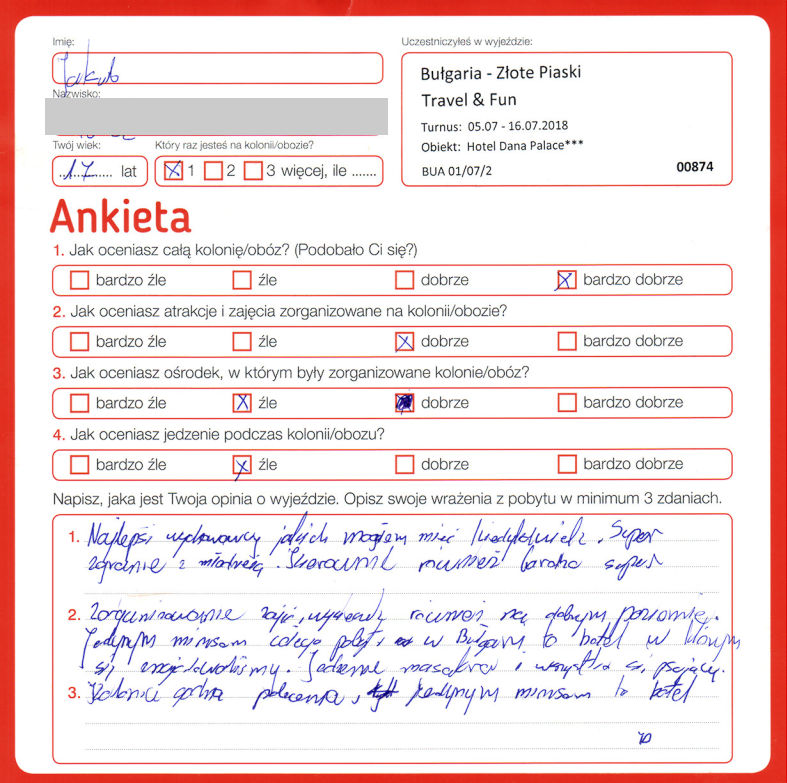 Imię:
Jakub
Nazwisko:
Twój wiek:
17 lat
Który raz jesteś na kolonii/obozie?
1 2 3 więcej, ile .......
Uczestniczyłeś w wyjeździe:
Bułgaria - Złote Piaski
Travel & Fun
Turnus: 05.07 - 16.07.2018
Obiekt: Hotel Dana Palace***
BUA 01/07/2 00874
Ankieta
1. Jak oceniasz całą kolonię/obóz? (Podobało Ci się?)
bardzo źle źle dobrze bardzo dobrze
2. Jak oceniasz atrakcje i zajęcia zorganizowane na kolonii/obozie?
bardzo źle źle dobrze bardzo dobrze
3. Jak oceniasz ośrodek, w którym były zorganizowane kolonie/obóz?
bardzo źle źle dobrze bardzo dobrze
4. Jak oceniasz jedzenie podczas kolonii/obozu?
bardzo źle źle dobrze bardzo dobrze
Napisz, jaka jest Twoja opinia o wyjeździe. Opisz swoje wrażenia z pobytu w minimum 3 zdaniach.
1. Najlepsi wychowawcy jakich mogłem mieć kiedykolwiek. Super
zgranie z młodzieżą. Kierownik również bardzo super
2. Zorganizowanie zajęć, wyjazdy również na dobrym poziomie.
Jedynym minusem całego pobytu w Bułgarii to hotel w którym
się znajdowaliśmy. Jedzenie masakra i wszystko się psujący.
3. Kolonia godna polecenia, jedynym minusem to hotel